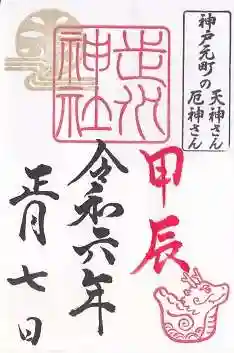 神戸元町の
天神さん
厄神さん
走水
神社
甲辰
令和六年
正月七日